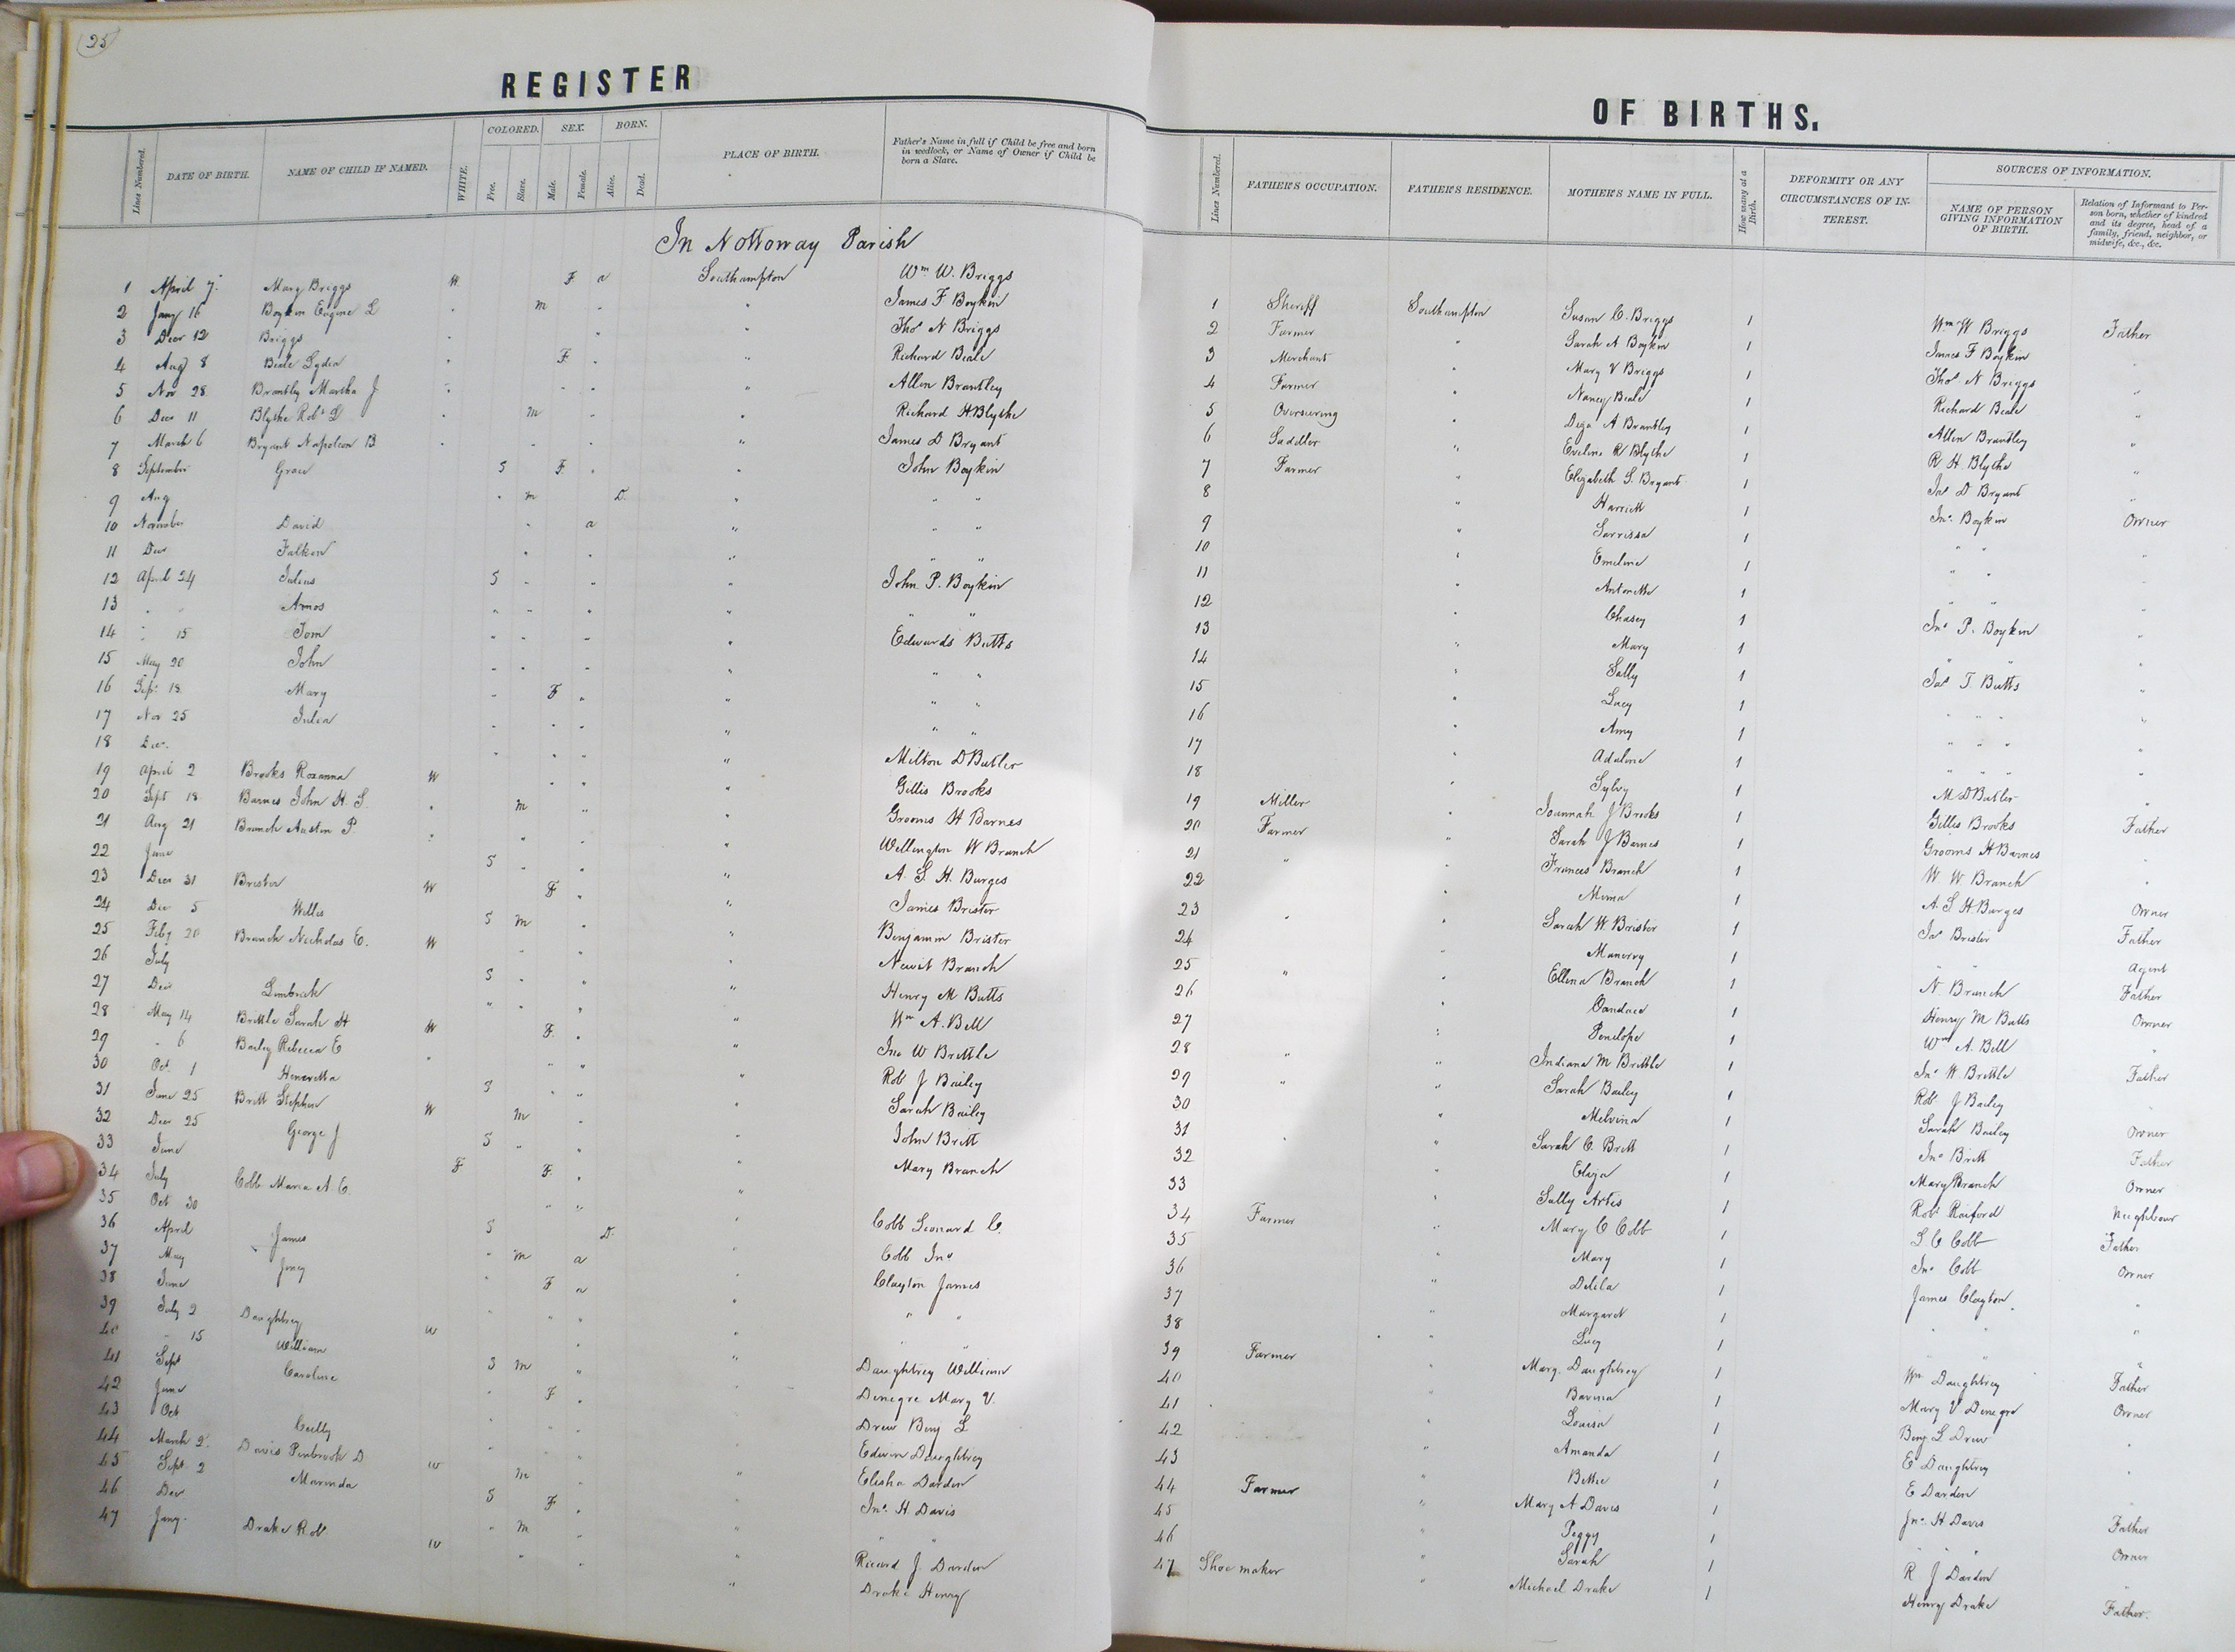 25
REGISTER
OF BIRTHS.
Lines Numbered.
DATE OF BIRTH.
NAME OF CHILD IF NAMED.
WHITE.
COLORED.
Free.
Slave.
SEX.
Male.
Female.
BORN.
Alive.
Dead.
PLACE OF BIRTH.
Father's Name in full if Child be free and born
in wedlock, or Name of Owner if Child be
born a Slave.
Lines Numbered.
FATHER'S OCCUPATION.
FATHER'S RESIDENCE.
MOTHER'S NAME IN FULL.
How many at a Birth.
DEFORMITY OR ANY
CIRCUMSTANCES OF IN-
TEREST.
SOURCES OF INFORMATION.
NAME OF PERSON
GIVING INFORMATION
OF BIRTH.
Relation of Informant to Per-
son born, whether of kindred
and its degree, head of a
family, friend, neighbor, or
midwife, &c., &c.
In Nottoway Parish
1 April 7 Mary Briggs W F a Southampton Wm W. Briggs
2 Jany 16 Boykin Eugene L " m " " James F Boykin
3 Decr 12 Briggs " " " Thos N Briggs
4 Aug 8 Beale Lydia " F " " Richard Beale
5 Nov 28 Brantly Martha J " " " " Allen Brantley
6 Decr 11 Blythe Robt L " m " " Richard H Blythe
7 March 6 Bryant Napoleon B " " " " James D Bryant
8 September Grace S F " " John Boykin
9 Aug " m D " " "
10 November David " a " " "
11 Decr " " " " "
12 April 24 Julius S " " " John P. Boykin
13 " " Amos " " " " " "
14 " 15 Tom " " " " Edwards Butts
15 May 20 John " " " " " "
16 Sept 18 Mary " F " " " "
17 Nov 25 Julia " " " " " "
18 Dec. " " " " Milton D Butler
19 April 2 Brooks Roxanna W " " " Gillis Brooks
20 Sept 18 Barnes John H. S. " m " " Grooms H Barnes
21 Aug 21 Branch Austin P. " " " " Wellington W Branch
22 June S " " " A. S. H. Burges
23 Decr 31 Brister W F " " James Brister
24 Dec 5 Willis S m " " Benjamin Brister
25 Feby 20 Branch Nicholas E. W " " " Newit Branch
26 July S " " " Henry M Butts
27 Decr " " " " Wm A. Bell
28 May 14 Brittle Sarah H W F " " Jno W Brittle
29 " 6 Bailey Rebecca E " " " " Rob J Bailey
30 Oct. 1 Henrietta S " " " Sarah Bailey
31 June 25 Britt Stephen W m " " John Britt
32 Decr 25 George J S " " " Mary Branch
33 June F F "
34 July Cobb Maria A. E. " " " Cobb Leonard C.
35 Oct 30 S D " Cobb Jno
36 April James " m a " Clayton James
37 May " F a " " "
38 June " " " " " "
39 July 2 Daughtrey W " " Daughtrey William
40 " 15 William S m " " Denegre Mary V.
41 Sept Caroline " F " Drew Benj L
42 June " " " Edwin Daughtrey
43 Oct " " " Elisha Darden
44 March 2 Davis D W m " " Jno. H. Davis
45 Sept 2 Marinda S F " " "
46 Dec " m " " J. Darden
47 Jany Drake Rob W " " " Drake Henry
1 Sheriff Southampton Susan C. Briggs 1 Wm W Briggs Father
2 Farmer " Sarah A Boykin 1 James F Boykin "
3 Merchant " Mary V Briggs 1 Thos N Briggs "
4 Farmer " Nancy Beale 1 Richard Beale "
5 Overseering " A Brantley 1 Allen Brantley "
6 Saddler " Eveline R Blythe 1 R H. Blythe "
7 Farmer " Elizabeth S. Bryant 1 Jas D Bryant "
8 " Harriett 1 Jno. Boykin Owner
9 " 1 " " "
10 " Emeline 1 " " "
11 " Antonette 1 " " "
12 " Chasey 1 Jno P. Boykin "
13 " Mary 1 " " "
14 " Sally 1 Jas T. Butts "
15 " Lucy 1 " " "
16 " Amy 1 " " "
17 " Adaline 1 " " "
18 " Sylvy 1 M D Butler "
19 Miller " Joannah J Brooks 1 Gillis Brooks Father
20 Farmer " Sarah J Barnes 1 Grooms H Barnes "
21 " " Frances Branch 1 W W Branch "
22 " Mima 1 A. S H Burges Owner
23 " " Sarah W Brister 1 Jas Brister Father
24 " 1 " " Agent
25 " " Ellena Branch 1 N. Branch Father
26 " Candace 1 Henry M Butts Owner
27 " Penelope 1 Wm A. Bell "
28 " " Indiana M Brittle 1 Jno W. Brittle Father
29 " " Sarah Bailey 1 Rob J Bailey
30 " Melvina 1 Sarah Bailey Owner
31 " " Sarah C. Britt 1 Jno Britt Father
32 " Eliza 1 Mary Branch Owner
33 " Sally Artis 1 Robt Raiford Neighbour
34 Farmer " Mary C Cobb 1 L C Cobb Father
35 " Mary 1 Jno Cobb Owner
36 " Delila 1 James Clayton "
37 " Margaret 1 " " "
38 " Lucy 1 " " "
39 Farmer " Mary. Daughtrey 1 Wm Daughtrey Father
40 " 1 Mary V Denegre Owner
41 " Louisa 1 Benj L Drew "
42 " Amanda 1 E Daughtrey "
43 " Bettie 1 E Darden
44 Farmer " Mary A Davis 1 Jno. H Davis Father
45 " Peggy 1 " " Owner
46 " Sarah 1 R J Darden "
47 Shoe maker " Michael Drake 1 Henry Drake Father.